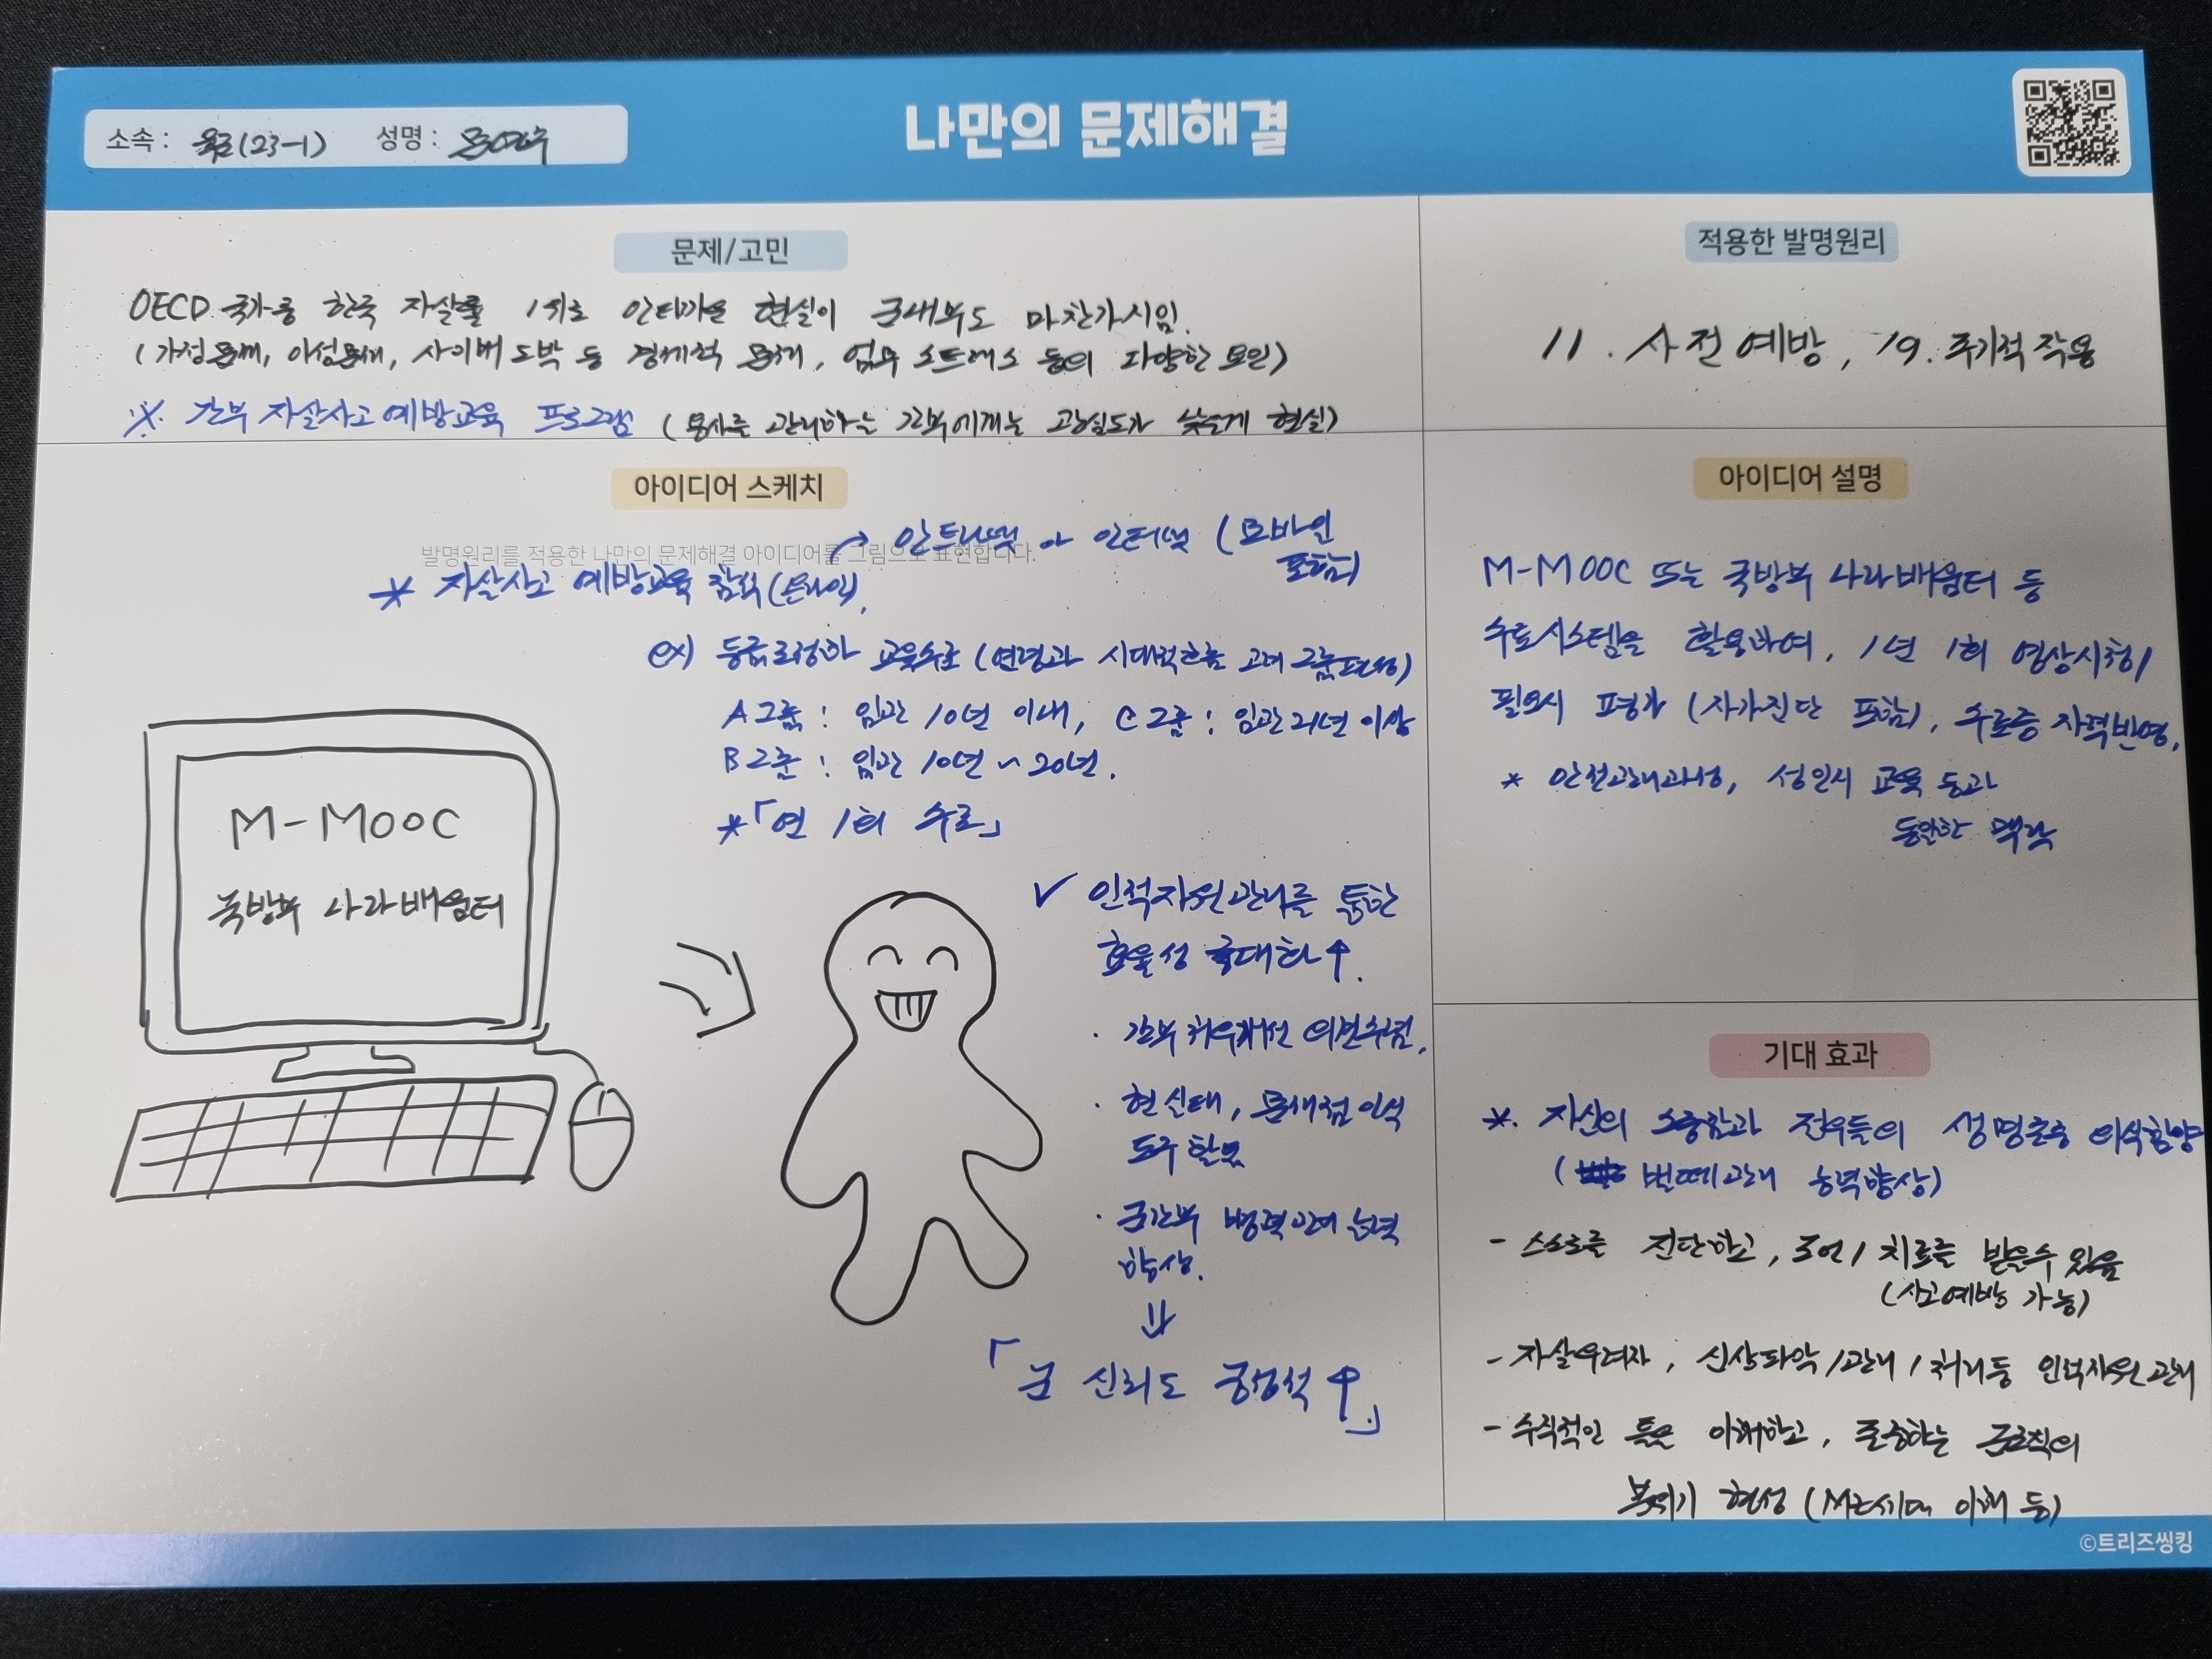 나만의 문제해결
소속 : (23-1) 성명 :
문제/고민
OECD 국가중 한국 자살률 1위로 안타까운 현실이 군내부도 마찬가지임.
(가정문제, 이성문제, 사이버 도박 등 경제적 문제, 업무 스트레스 등의 다양한 요인)
※ 간부 자살사고 예방교육 프로그램 (용사를 관리하는 간부에게는 관심도가 낮은게 현실)
적용한 발명원리
11. 사전예방, 19. 주기적 작용
아이디어 스케치
발명원리를 적용한 나만의 문제해결 아이디어를 그림으로 표현합니다.
→ 인트라넷 or 인터넷 (모바일
포함)
* 자살사고 예방교육 참석(온라인),
ex) 등급조정하 교육수료 (연령과 시대적흐름 고려 그룹편성)
A그룹 : 임관 10년 이내, C그룹 : 임관 21년 이상
B그룹 : 임관 10년 ~ 20년.
*「연 1회 수료」
M-MOOC
국방부 나라배움터
✓ 인적자원관리를 통한
효율성 극대화↑.
· 간부 처우개선 의견수렴.
· 현 실태, 문제점 인식
도구 활용
· 군간부 병력관리 능력
향상.
⇓
「군 신뢰도 긍정적↑」
아이디어 설명
M-MOOC 또는 국방부 나라배움터 등
수료시스템을 활용하여, 1년 1회 영상시청/
필요시 평가 (자가진단 포함), 수료증 자력반영.
* 안전관리과정, 성인지 교육 등과
동일한 맥락
기대 효과
*. 자신의 소중함과 전우들의 생명존중 의식함양
( 벌떼관리 능력향상)
- 스스로를 진단하고, 조언/치료를 받을수 있음
(사고예방 가능)
- 자살우려자, 신상파악/관리/처리등 인적자원관리
- 수직적인 틀을 이해하고, 존중하는 군조직의
분위기 형성 (MZ세대 이해 등)
©트리즈씽킹